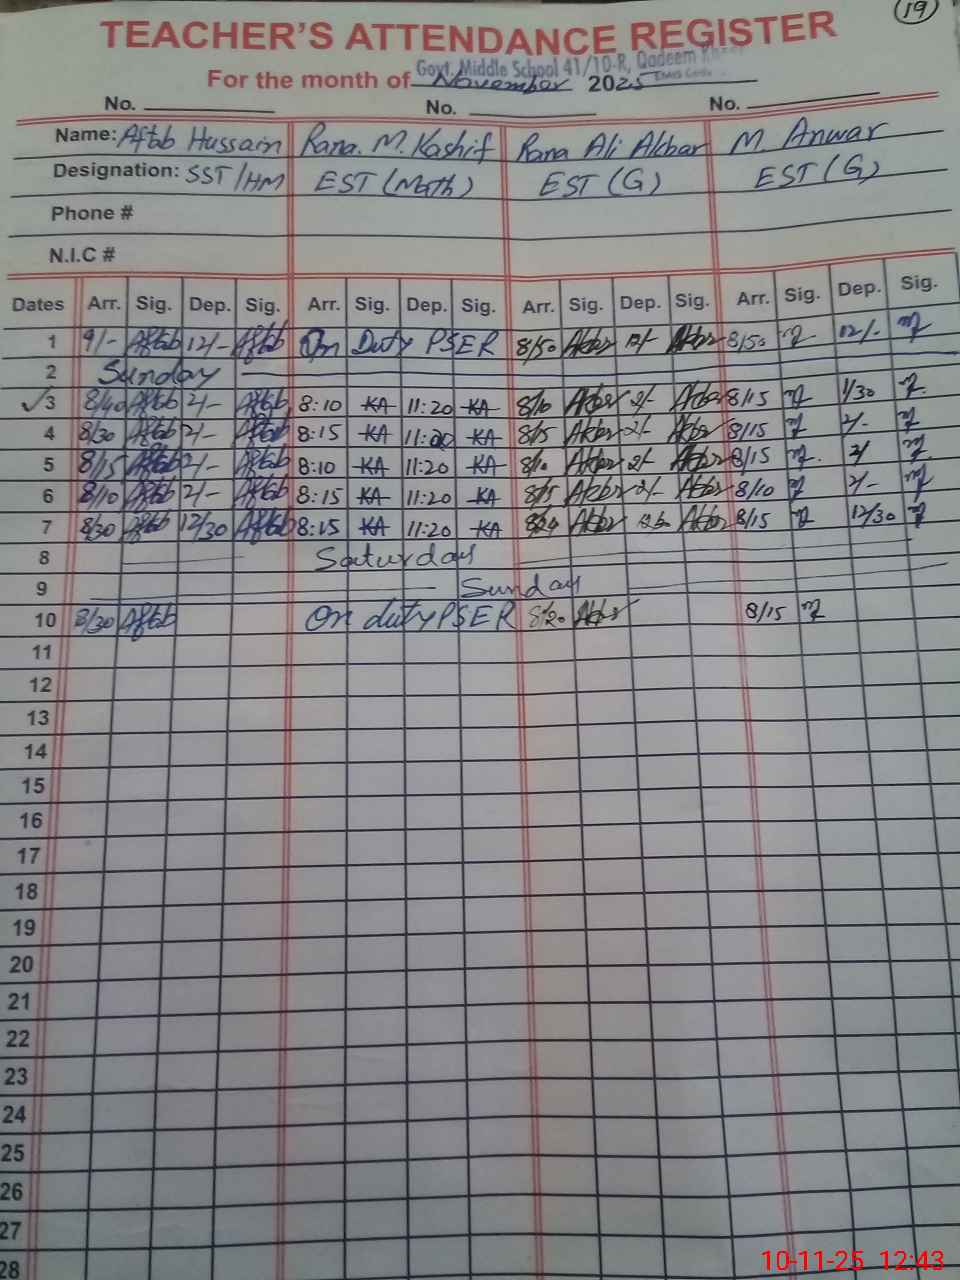 19
TEACHER'S ATTENDANCE REGISTER
Govt. Middle School 41/10-R, Qadeem
For the month of November 2025
No. No. No.
Name: Aftab Hussain Rana. M. Kashif Rana Ali Akbar M Anwar
Designation: SST/HM EST (Math) EST (G) EST (G)
Phone #
N.I.C #
Dates Arr. Sig. Dep. Sig. Arr. Sig. Dep. Sig. Arr. Sig. Dep. Sig. Arr. Sig. Dep. Sig.
1 9/- Aftab 12/- Aftab On Duty PSER 8/50 Akbar 12/- Akbar 8/50 12/-
2 Sunday
✓3 8/40 Aftab 2/- Aftab 8:10 KA 11:20 KA 8/10 Akbar 2/- Akbar 8/15 1/30
4 8/30 Aftab 2/- Aftab 8:15 KA 11:20 KA 8/15 Akbar 2/- Akbar 8/15 2/-
5 8/15 Aftab 2/- Aftab 8:10 KA 11:20 KA 8/10 Akbar 2/- Akbar 8/15 2/
6 8/10 Aftab 2/- Aftab 8:15 KA 11:20 KA 8/15 Akbar 2/- Akbar 8/10 2/-
7 8/30 Aftab 12/30 Aftab 8:15 KA 11:20 KA Akbar Akbar 8/15 12/30
8 Saturday
9 Sunday
10 8/30 Aftab On duty PSER 8/20 Akbar 8/15
11
12
13
14
15
16
17
18
19
20
21
22
23
24
25
26
27
28
10-11-25 12:43